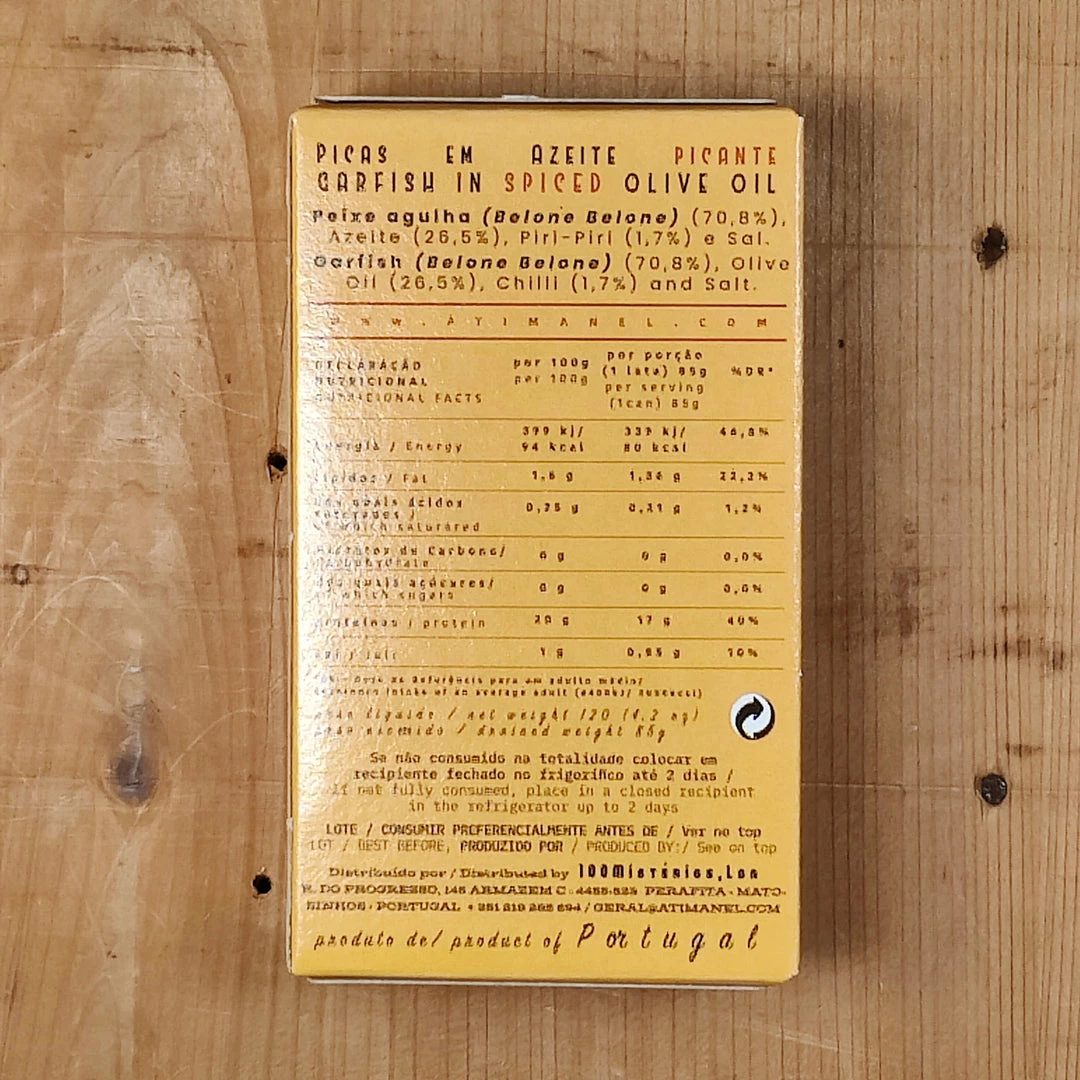 PICAS EM AZEITE PICANTE
GARFISH IN SPICED OLIVE OIL
Peixe agulha (Belone Belone) (70,8%),
Azeite (26,5%), Piri-Piri (1,7%) e Sal.
Garfish (Belone Belone) (70,8%), Olive
Oil (26,5%), Chilli (1,7%) and Salt.
WWW.ATIMANEL.COM
DECLARAÇÃO NUTRICIONAL
NUTRICIONAL FACTS
per 100g
per 100g
per porção
(1 lata) 85g
per serving
(1can) 85g
%DR*
Energia / Energy 399 kj/ 94 kcal 339 kj/ 80 kcal
Lípidos / Fat 1,6 g 1,36 g
dos quais ácidos
saturados /
of which saturared 0,25 g 0,21 g 1,2%
Hidratos de Carbono/
carbohydrate 0 g 0 g 0,0%
dos quais açúcares/
of which sugars 0 g 0 g 0,0%
Proteínas / protein 20 g 17 g 40%
Sal / salt 1 g 0,85 g 10%
Dose de Referência para um adulto médio/
Reference intake of an average adult
peso líquido / net weight 120 (4.2 oz)
peso escorrido / drained weight 85g
Se não consumido na totalidade colocar em
recipiente fechado no frigorífico até 2 dias /
If not fully consumed, place in a closed recipient
in the refrigerator up to 2 days
LOTE / CONSUMIR PREFERENCIALMENTE ANTES DE / Ver no top
LOT / BEST BEFORE, PRODUZIDO POR / PRODUCED BY:/ See on top
Distribuído por / Distributed by 100Misterios,Lda
R. DO PROGRESSO, 145 ARMAZEM C PERAFITA - MATO-
SINHOS - PORTUGAL / GERAL@ATIMANEL.COM
produto de/ product of Portugal